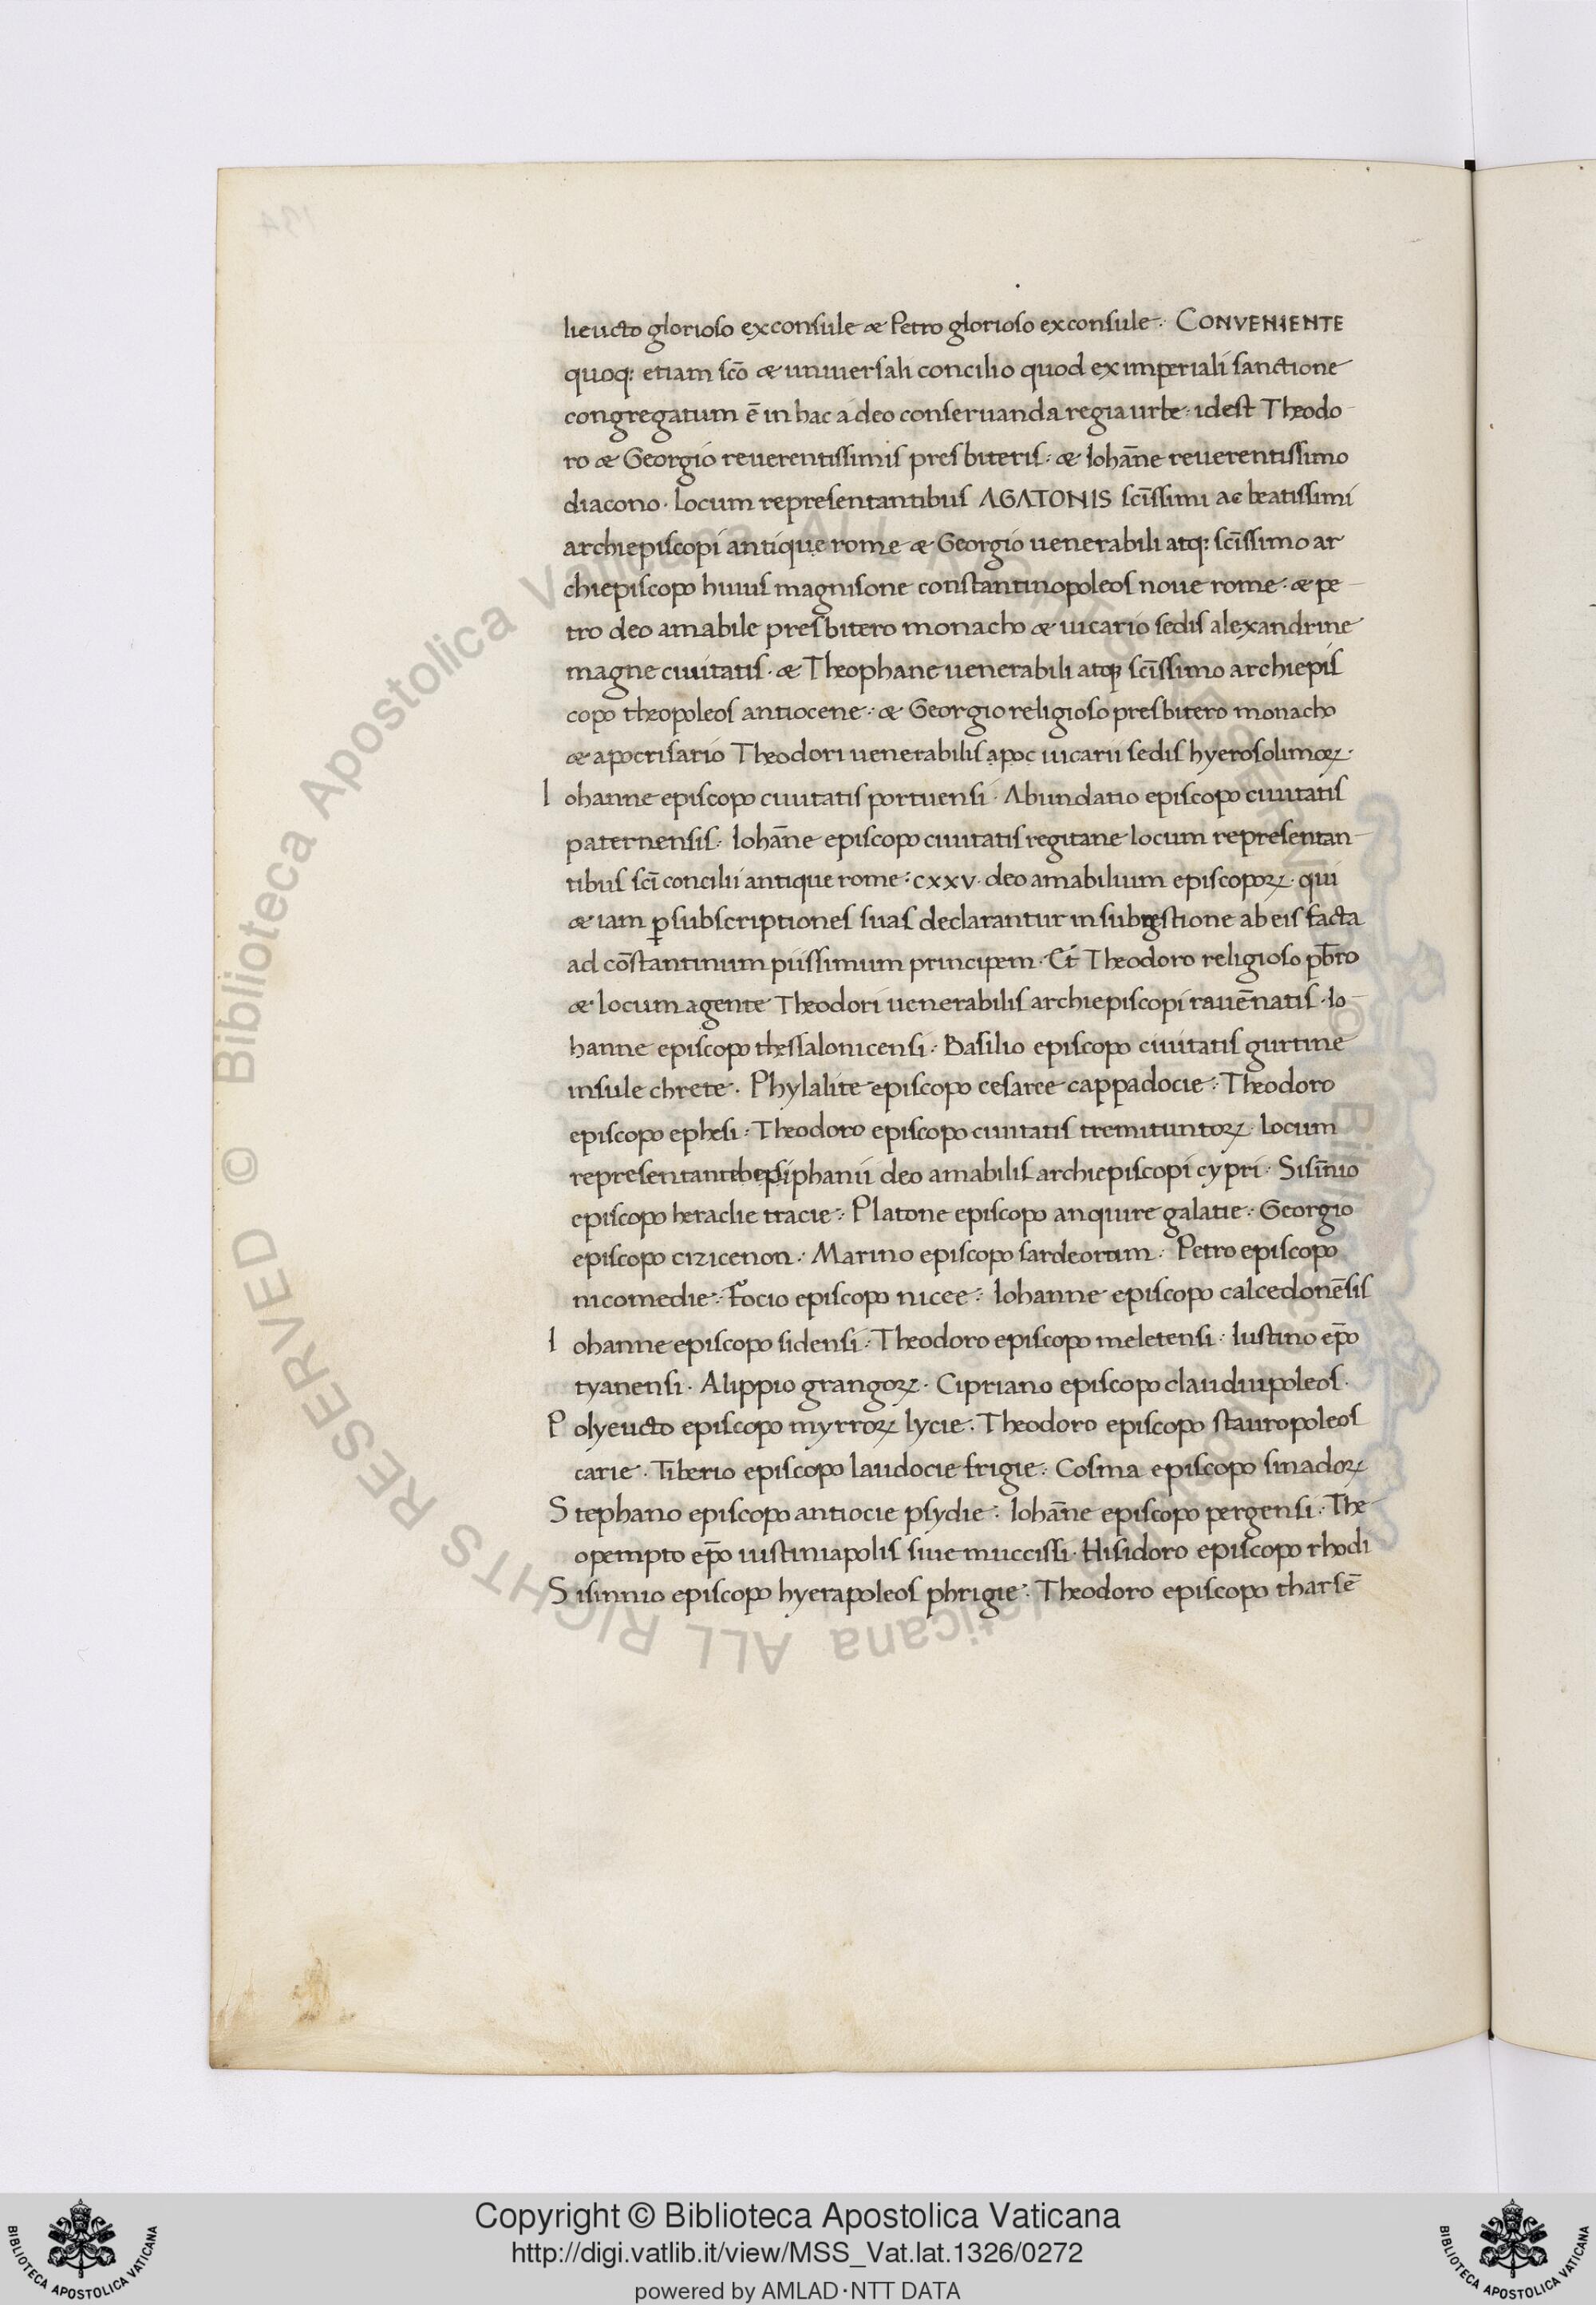 lieucto glorioso exconsule & Petro glorioso exconsule. CONVENIENTE
quoq; etiam sc̄o & uniuersali concilio quod ex imperiali sanctione
congregatum ē in hac a deo conseruanda regia urbe. idest Theodo
ro & Georgio reuerentissimis presbiteris. & Iohāne reuerentissimo
diacono. Locum representantibus AGATONIS sc̄issimi ac beatissimi
archiepiscopi antique rome & Georgio uenerabili atq; sc̄issimo ar
chiepiscopo huius magnisone constantinopoleos noue rome. & pe
tro deo amabile presbitero monacho & uicario sedis alexandrine
magne ciuitatis. & Theophane uenerabili atq; sc̄issimo archiepis
copo theopoleos antiocene. & Georgio religioso presbitero monacho
& apocrisario Theodori uenerabilis apoc uicarii sedis hyerosolimoꝝ.
Iohanne episcopo ciuitatis portuensi. Abundatio episcopo ciuitatis
paternensis. Iohāne episcopo ciuitatis regitane locum representan
tibus sc̄i concilii antique rome. cxxv. deo amabilium episcopoꝝ. qui
& iam ꝑ subscriptiones suas declarantur in subgestione ab eis facta
ad cōstantinum piissimum principem. Et Theodoro religioso pb̄ro
& locum agente Theodori uenerabilis archiepiscopi rauēnatis. Io
hanne episcopo thessalonicensi. Basilio episcopo ciuitatis gurtine
insule chrete. Phylalite episcopo cesaree cappadocie. Theodoro
episcopo ephesi. Theodoro episcopo ciuitatis tremituntoꝝ. Locum
epiphanii deo amabilis archiepiscopi cypri. Sisin̄io
episcopo heraclie tracie. Platone episcopo anquire galatie. Georgio
episcopo cizicenon. Marino episcopo sardeorum. Petro episcopo
nicomedie. Focio episcopo nicee. Iohanne episcopo calcedonēsis
Iohanne episcopo sidensi. Theodoro episcopo meletensi. Iustino ep̄o
tyanensi. Alippio grangoꝝ. Cipriano episcopo claudiupoleos.
Polyeucto episcopo myrroꝝ lycie. Theodoro episcopo stauropoleos
carie. Tiberio episcopo laudocie frigie. Cosma episcopo sinadoꝝ
Stephano episcopo antiocie psydie. Iohāne episcopo pergensi. The
opempto ep̄o iustiniapolis siue muccissi. Hisidoro episcopo rhodi
Sisinnio episcopo hyerapoleos phrigie. Theodoro episcopo tharsē
© Biblioteca Apostolica Vaticana ALL RIGHTS RESERVED © Biblioteca Apostolica Vaticana ALL RIGHTS RESERVED
BIBLIOTECA APOSTOLICA VATICANA
Copyright © Biblioteca Apostolica Vaticana
http://digi.vatlib.it/view/MSS_Vat.lat.1326/0272
powered by AMLAD·NTT DATA
BIBLIOTECA APOSTOLICA VATICANA